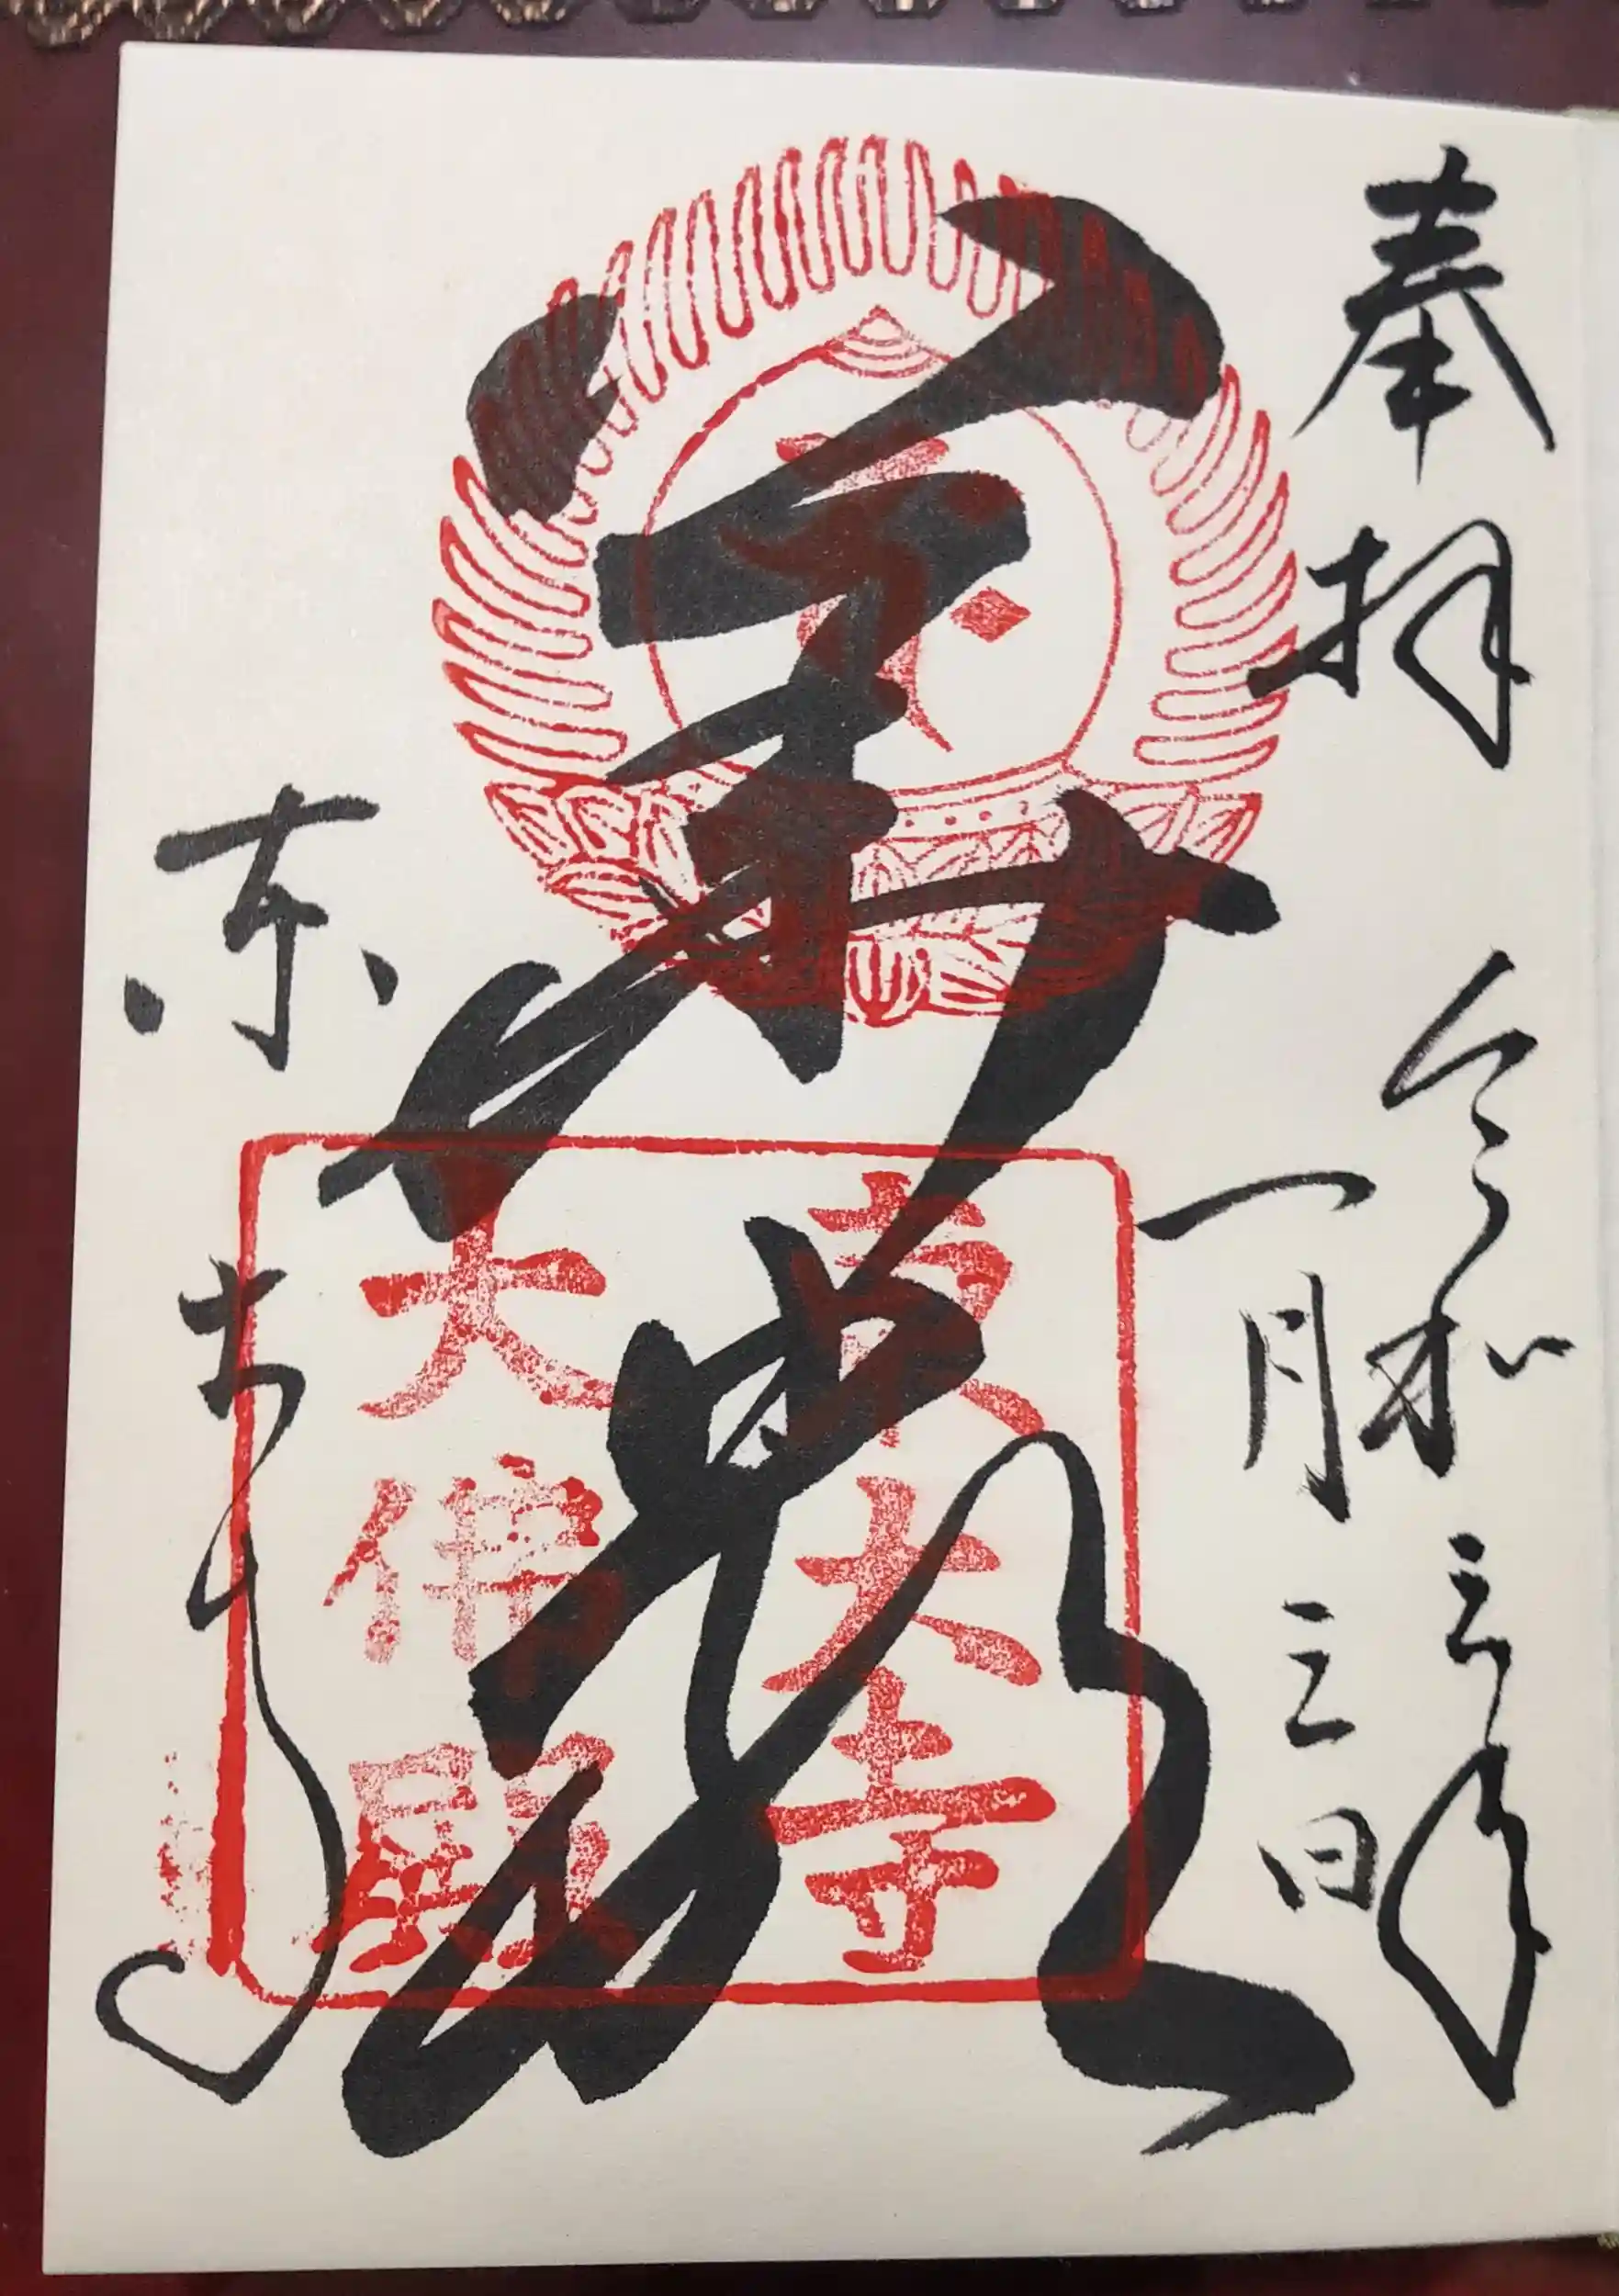 奉拝 令和三年
一月三日
華厳
東大寺
東大寺
大佛殿